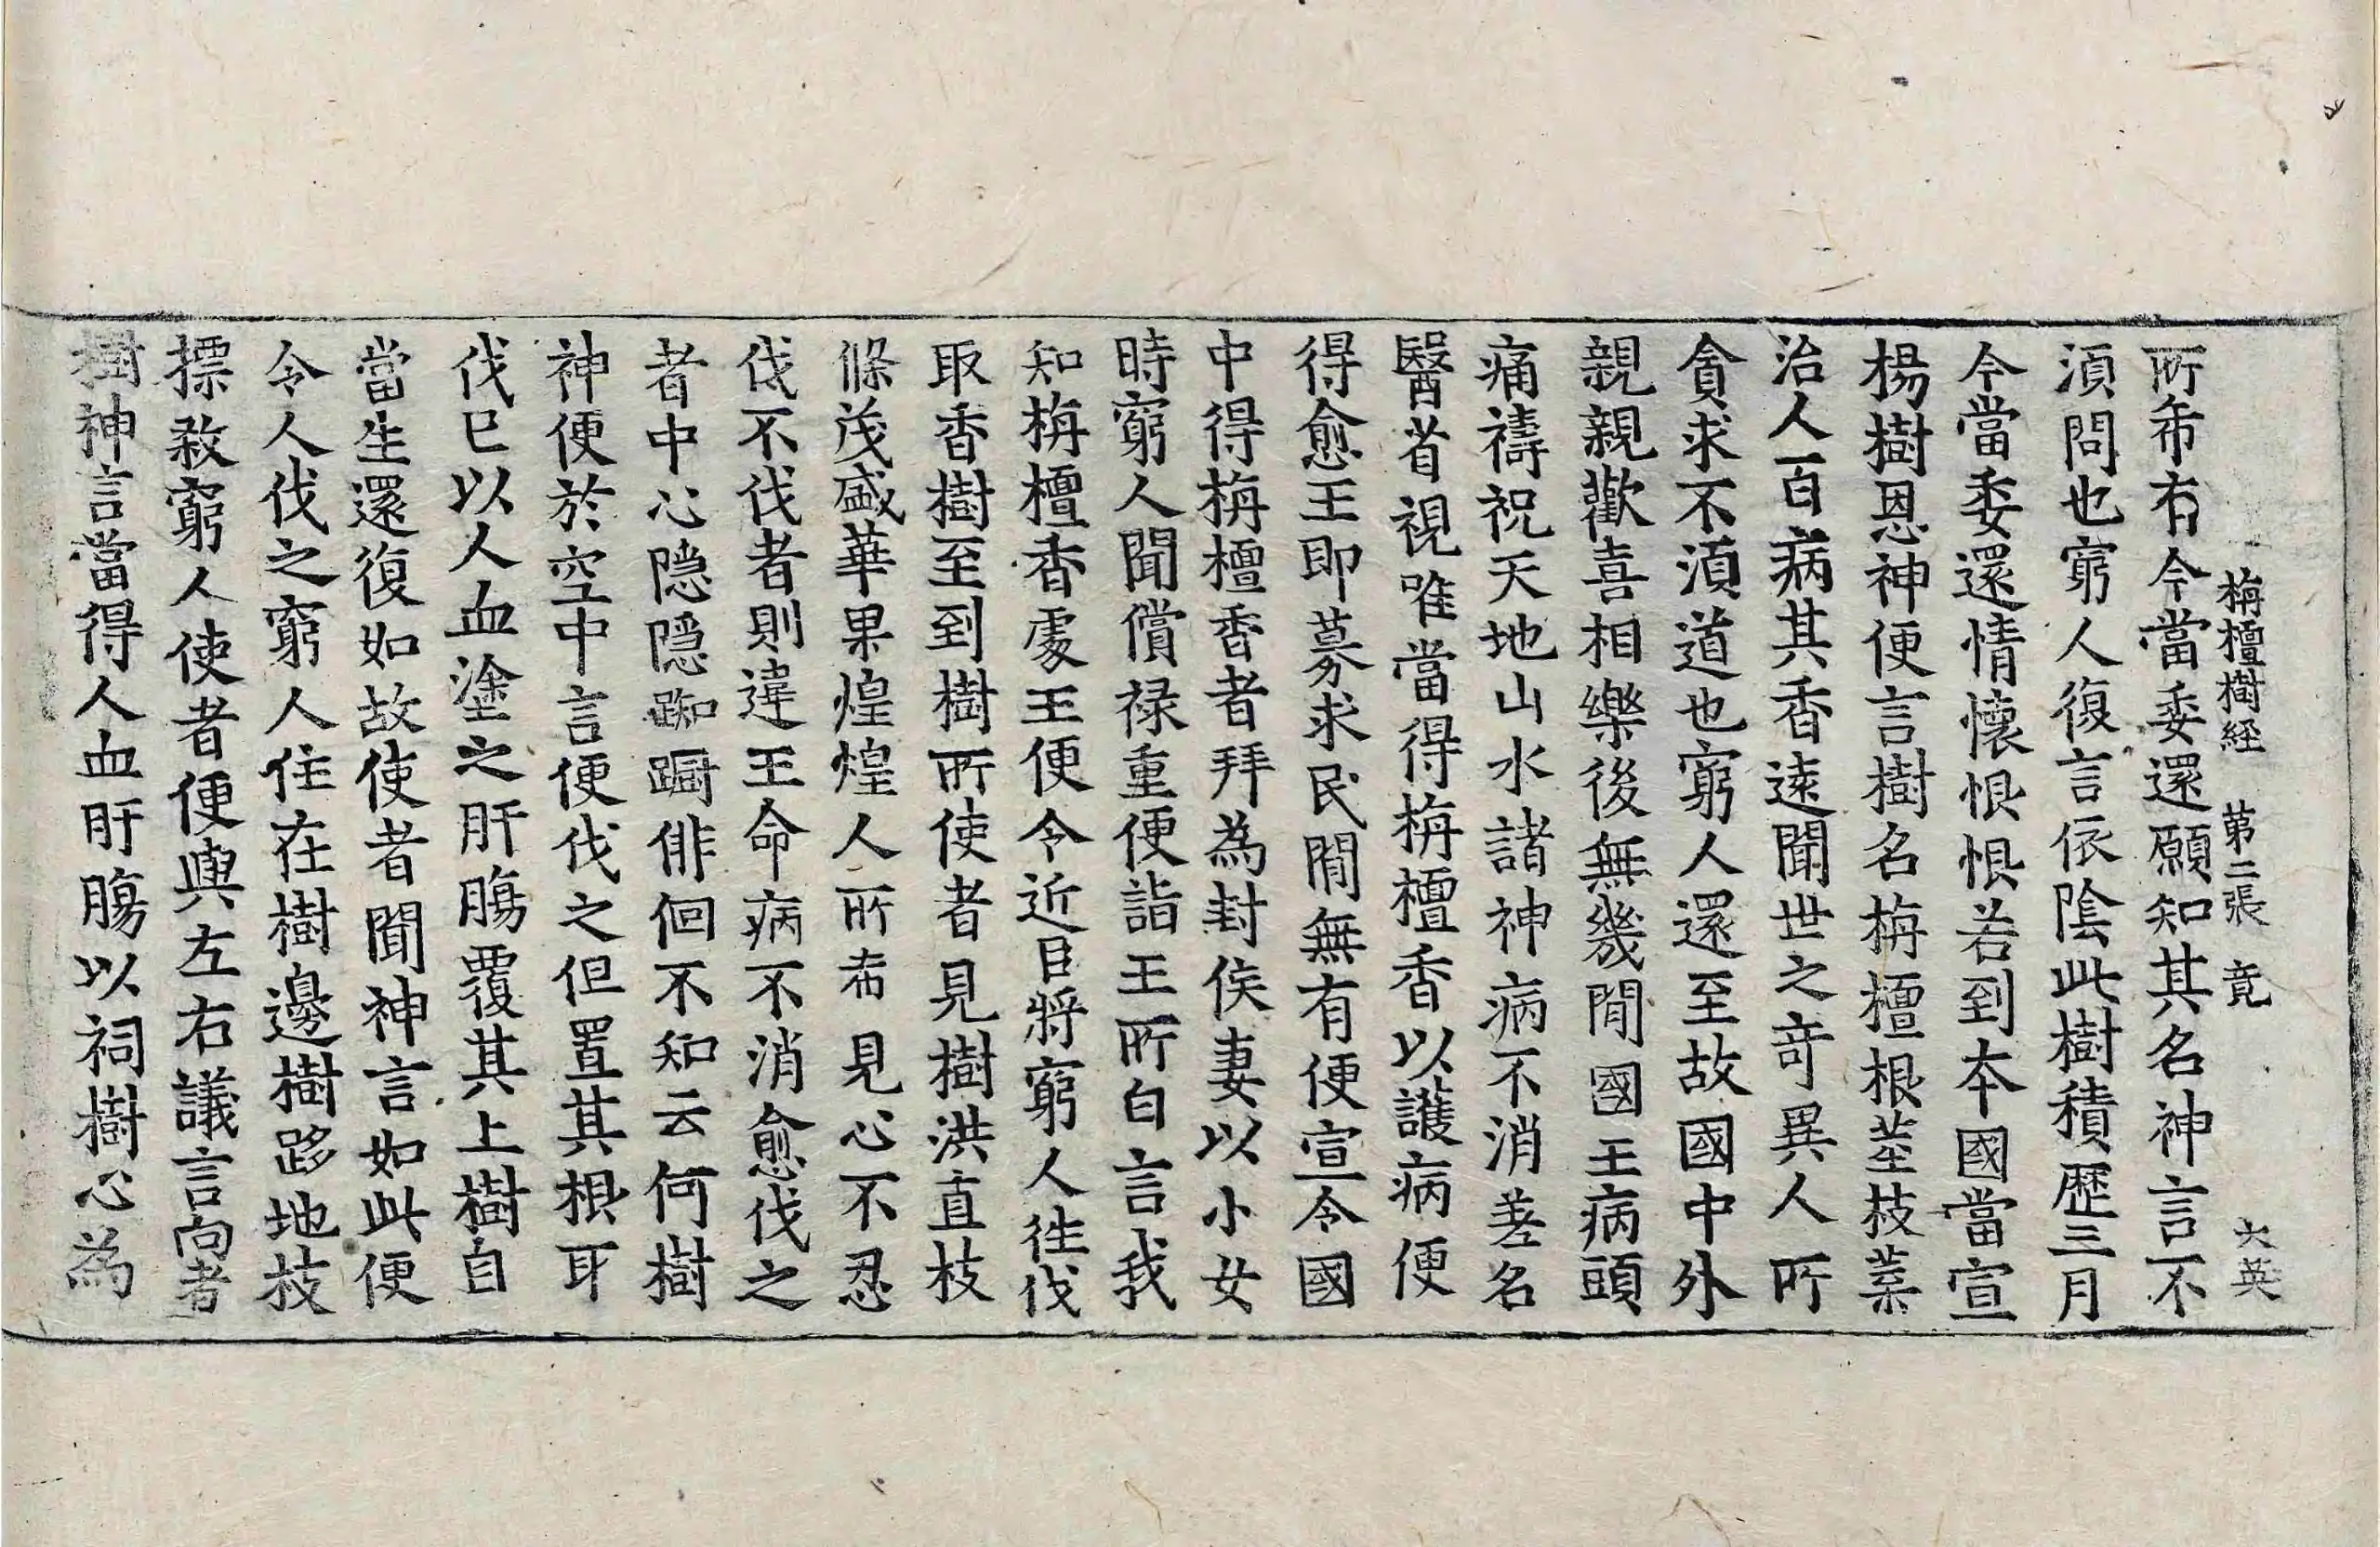 栴檀樹経 第二張 竟 大英
所希有今當委還願知其名神言不
湏問也窮人復言依陰此樹積歷三月
今當委還情懷恨恨若到本國當宣
楊樹恩神便言樹名栴檀根莖枝葉
治人百病其香遠聞世之竒異人所
貪求不湏道也窮人還至故國中外
親親歡喜相樂後無幾間國王病頭
痛禱祝天地山水諸神病不消差名
醫省視唯當得栴檀香以護病便
得愈王即募求民間無有便宣令國
中得栴檀香者拜為封侯妻以小女
時窮人聞償禄重便詣王所白言我
知栴檀香處王便令近臣將窮人徃伐
取香樹至到樹所使者見樹洪直枝
條茂盛華果煌煌人所希見心不忍
伐不伐者則違王命病不消愈伐之
者中心隱隱踟躕俳佪不知云何樹
神便於空中言便伐之但置其根耳
伐巳以人血塗之肝膓覆其上樹自
當生還復如故使者聞神言如此便
令人伐之窮人住在樹邊樹跢地枝
摽殺窮人使者便輿左右議言向者
樹神言當得人血肝膓以祠樹心為